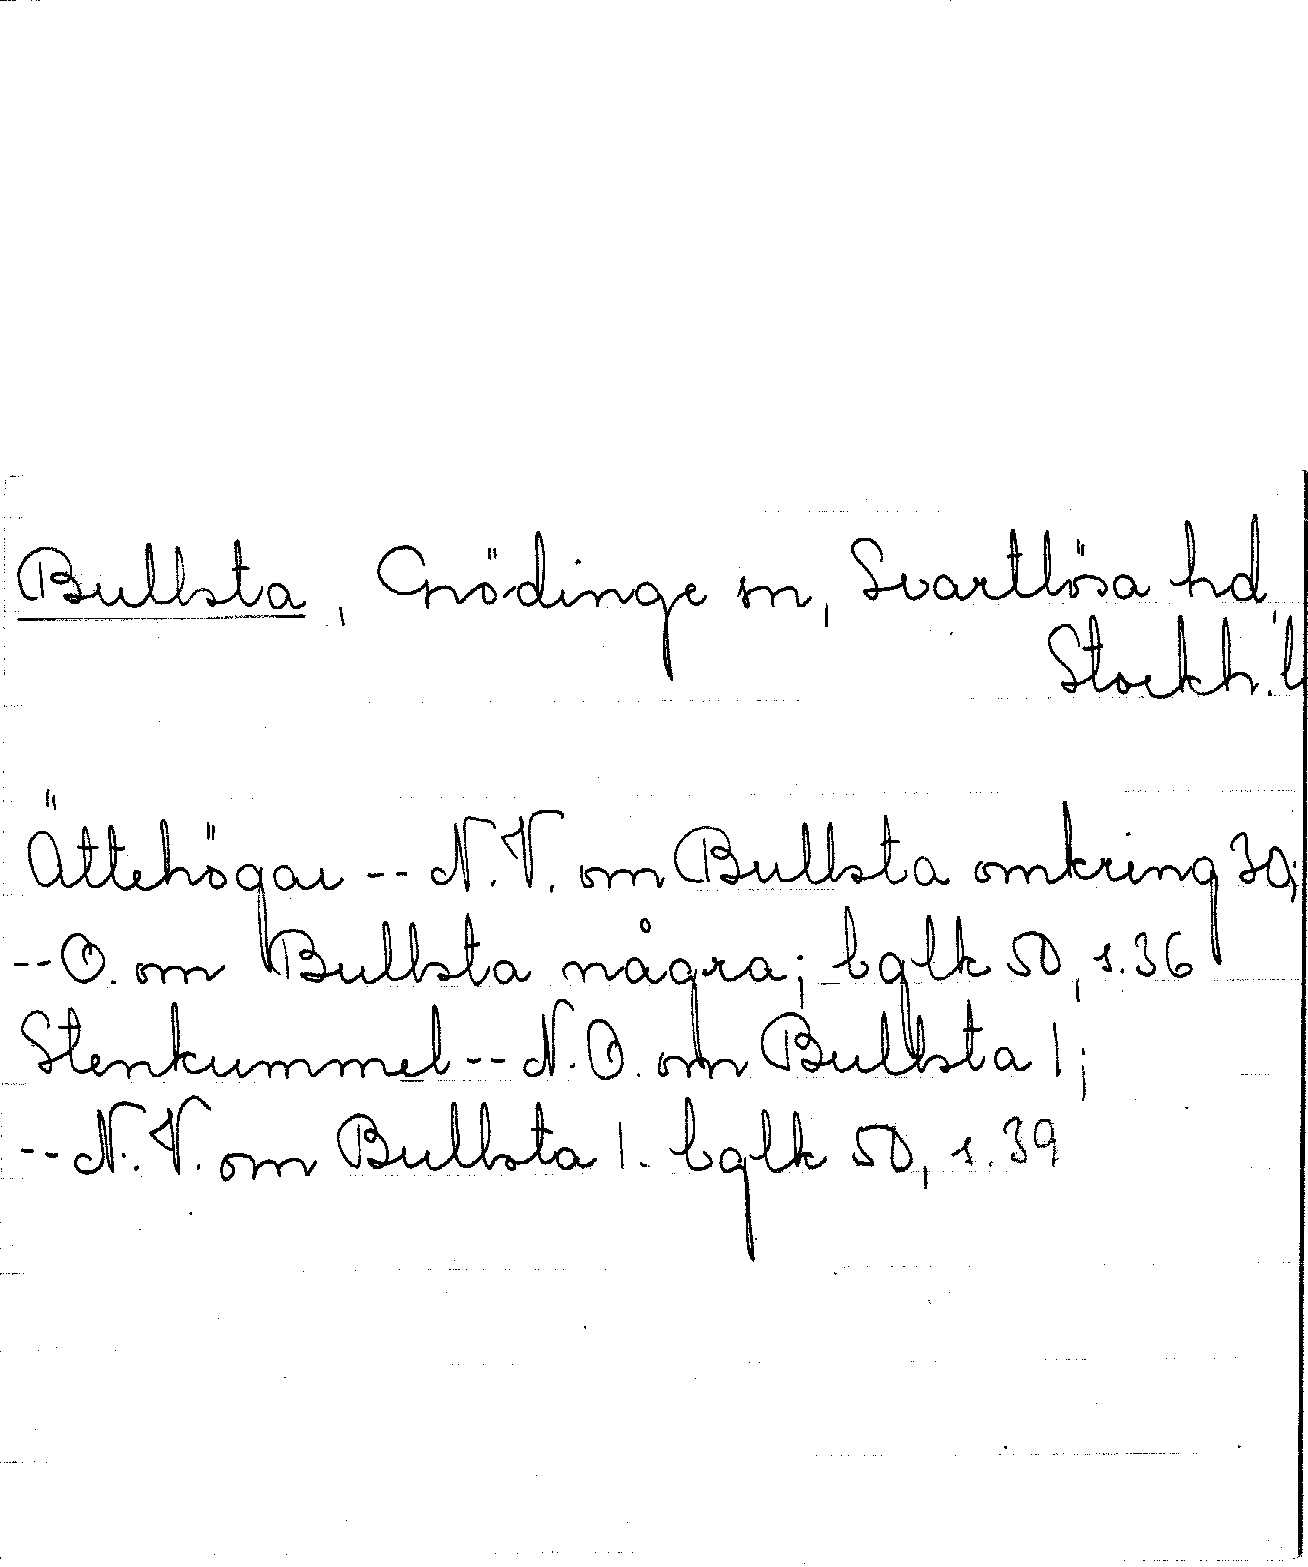 Bullsta, Grödinge sn, Svartlösa hd,
Stockh. l
Ättehögar -- N.V. om Bullsta omkring 30;
-- O. om Bullsta några; bglk 50, s. 36
Stenkummel -- N.O. om Bullsta 1;
-- N.V. om Bullsta 1. bglk 50, s. 39